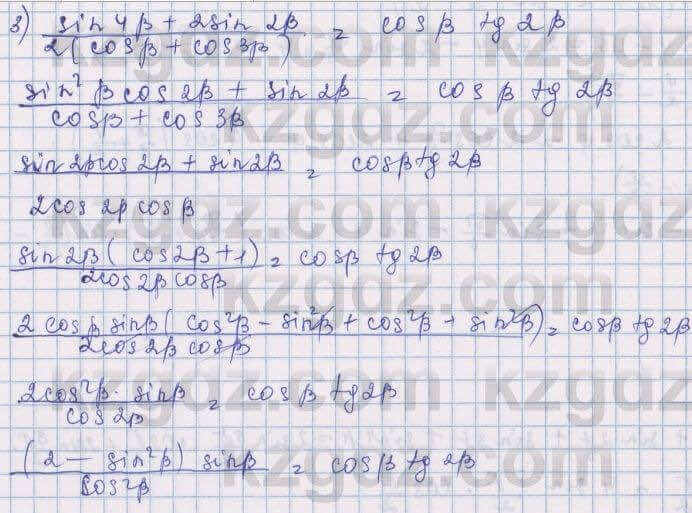 3) (sin 4β + 2sin 2β) / (2(cosβ + cos3β)) = cosβ tg 2β
(sin² β cos 2β + sin 2β) / (cosβ + cos 3β) = cos β tg 2β
(sin 2β cos 2β + sin2β) / (2cos 2β cosβ) = cosβ tg 2β
(sin 2β (cos2β + 1)) / (2cos 2β cosβ) = cosβ tg 2β
(2 cosβ sinβ (cos²β - sin²β + cos²β + sin²β)) / (2cos 2β cosβ) = cosβ tg 2β
(2cos²β · sinβ) / (cos 2β) = cos β tg2β
((2 - sin²β) sinβ) / (cos²β) = cosβ tg 2β
kzgdz.com
kzgdz.com
kzgdz.com
kzgdz.com
kzgdz.com
kzgdz.com